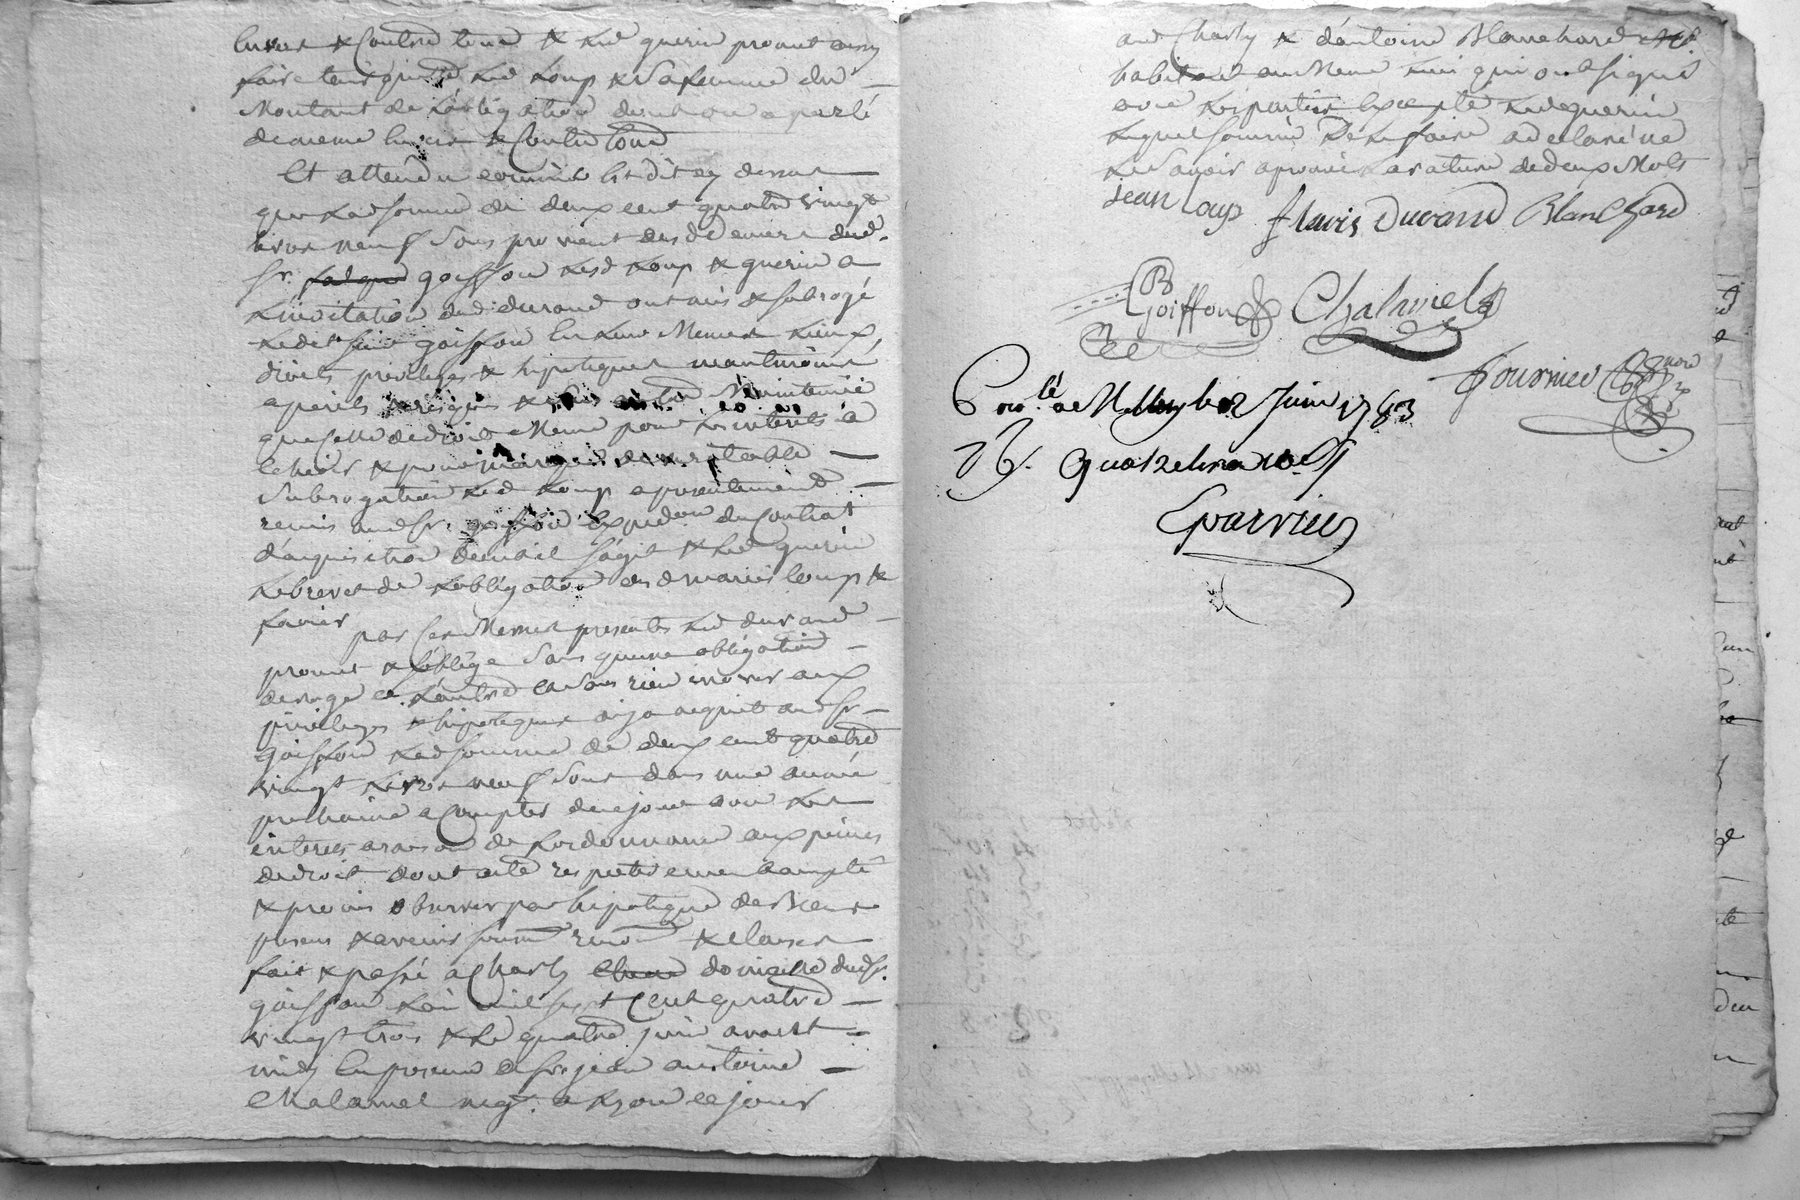 envers & Contre tous & led guerin promet aussy
faire tenir quitte led Loup & sa femme du
Montant de l'obligation dont on a parlé
de meme envers & Contre tous
Et attendu comme est dit cy dessus
que lad somme de deux cent quatre vingt
livres neuf sous provient des deniers dud.
Sr. goiffon lesd Loup & guerin a
l'invitation dud durand ont mis & subrogé
led sieur goiffon en leurs Memes lieux,
droits privileges & hipoteques neantmoins
a perils risques & sans autre Maintenue
que celle de droit Meme pour les interets a
echeoir & pour marque de veritable
subrogation led Loup a presentement
remis aud Sr. goiffon Expedon du Contrat
d'acquisition dont il s'agit & led guerin
le brevet de l'obligation desd mariés Loup &
favier
par Ces Memes presentes led durand
promet & s'oblige sans qu'une obligation
deroge a l'autre et sans rien innover aux
privileges & hipoteques deja acquis aud Sr
goiffon lad somme de deux cent quatre
vingt livres neuf sous dans une année
prochaine a Compter de ce jour avec les
interets a raison de l'ordonnance aux peines
de droit dont acte respectivement accepté
& promis observer par hipoteque des Biens
presens & avenir soumon renon & clauses
fait & passé a Charly domicille dud Sr.
goiffon L'an mil sept Cent quatre
vingt trois & le quatre juin avant
midy En presence de Sr. jean antoine
Chalamel negt. a Lyon ce jour
aud Charly & d'antoine Blanchard
habitant au Meme lieu qui ont signé
avec les parties Excepté led guerin
lequel sommé de le faire a declaré ne
le savoir aprouvé la rature de deux Mots
Jean Loup flavis Durand Blanchard
Goiffon Chalamel
Fournier
Conolé a Millery le 12 Juin 1783
R/. Quatorze livres
Gparrieu